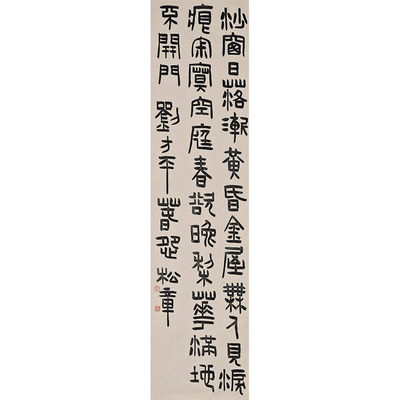 紗窗日落漸黃昏金屋無人見淚
痕寂寞空庭春欲晚梨華滿地
不開門 劉方平春怨 松章